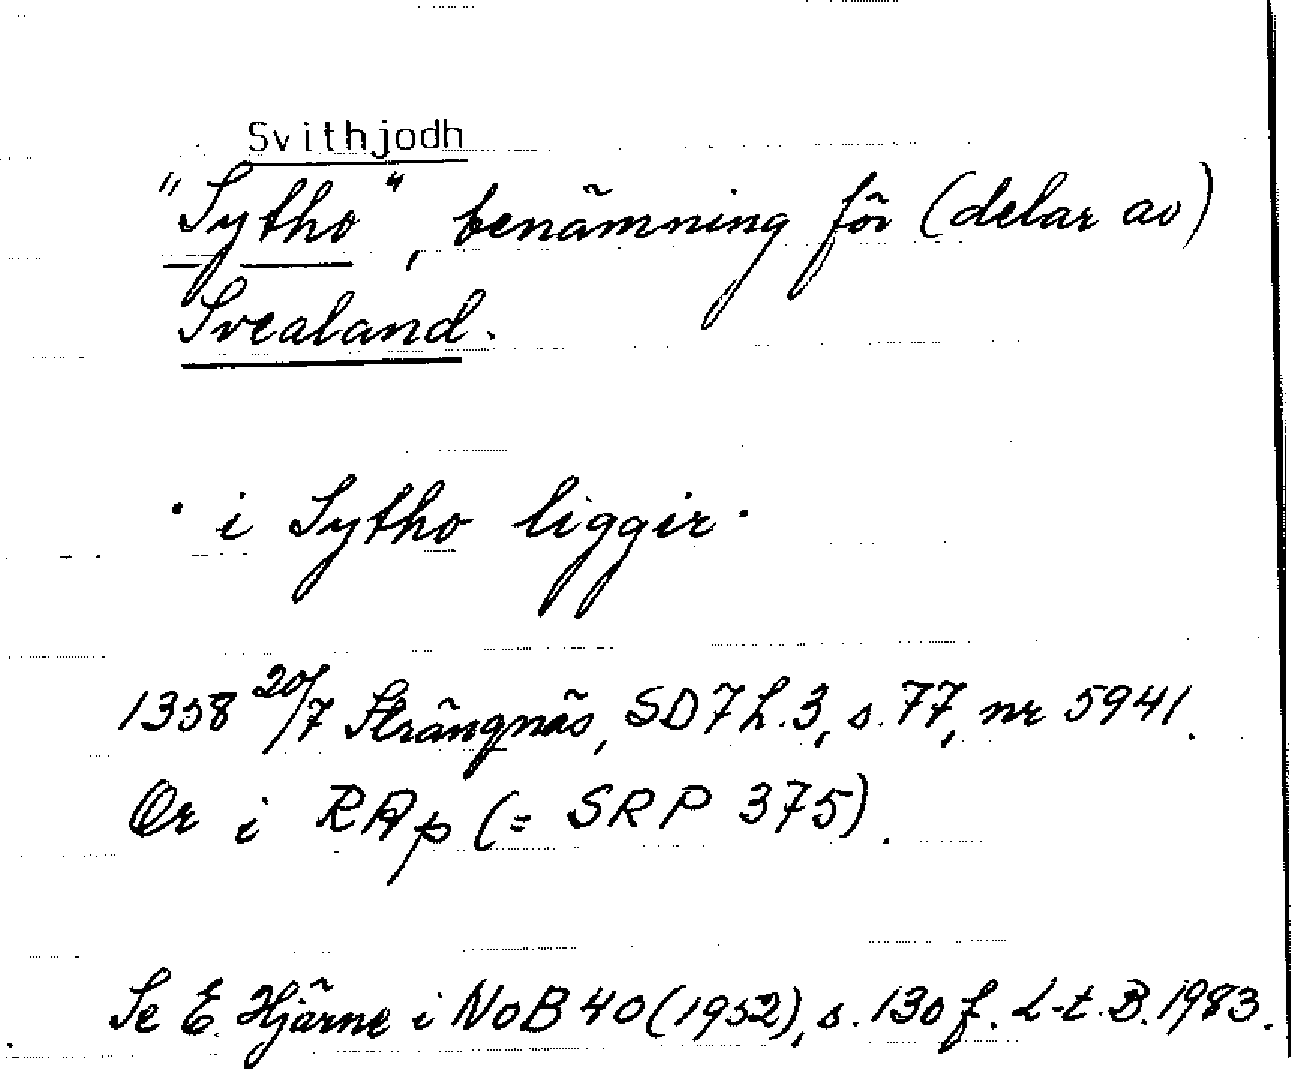 Svithjodh
"Sytho", benämning för (delar av)
Svealand.
· i Sytho liggir ·
1358 20/7 Strängnäs, SD 7 h. 3, s. 77, nr 5941.
Or i RAp (= SRP 375).
Se E. Hjärne i NoB 40 (1952), s. 130 f. L-t. B. 1983.